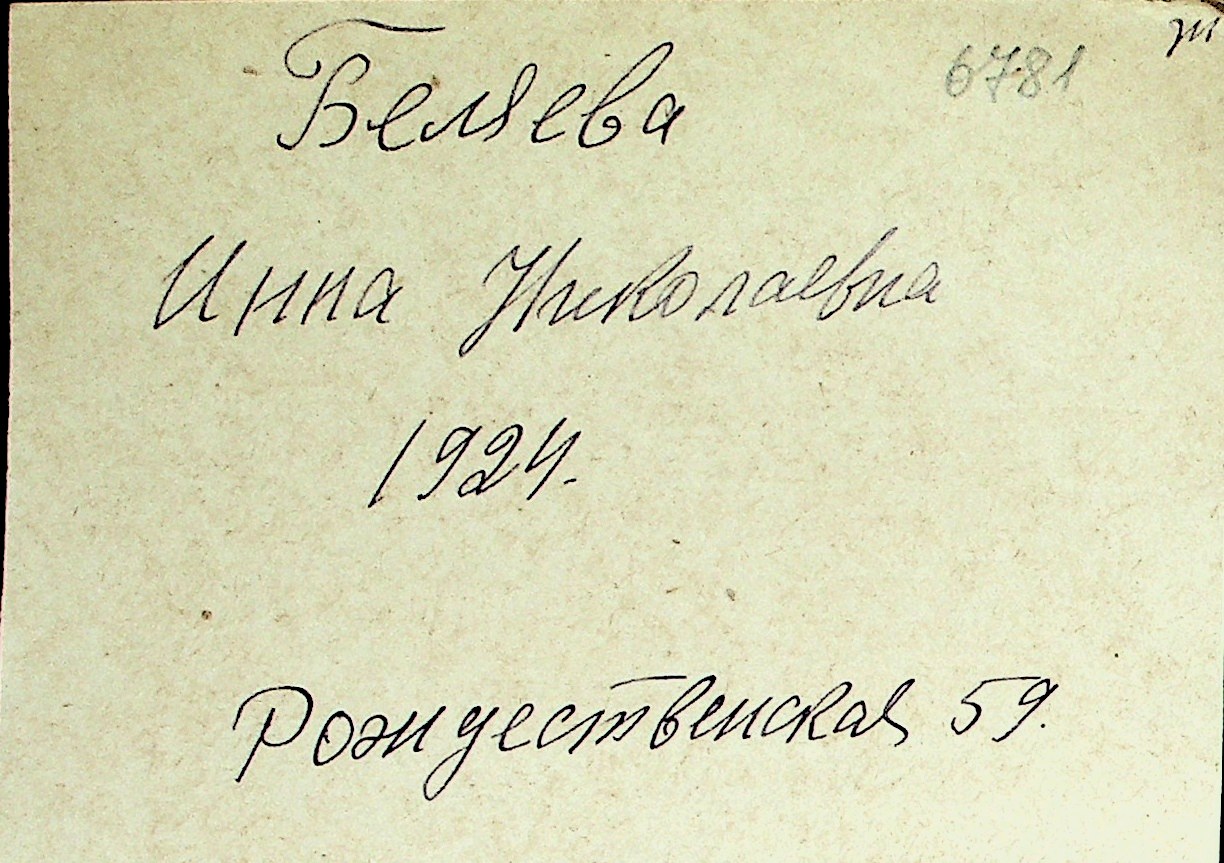 Беляева 6781
Инна Николаевна
1924.
Рождественская 59.